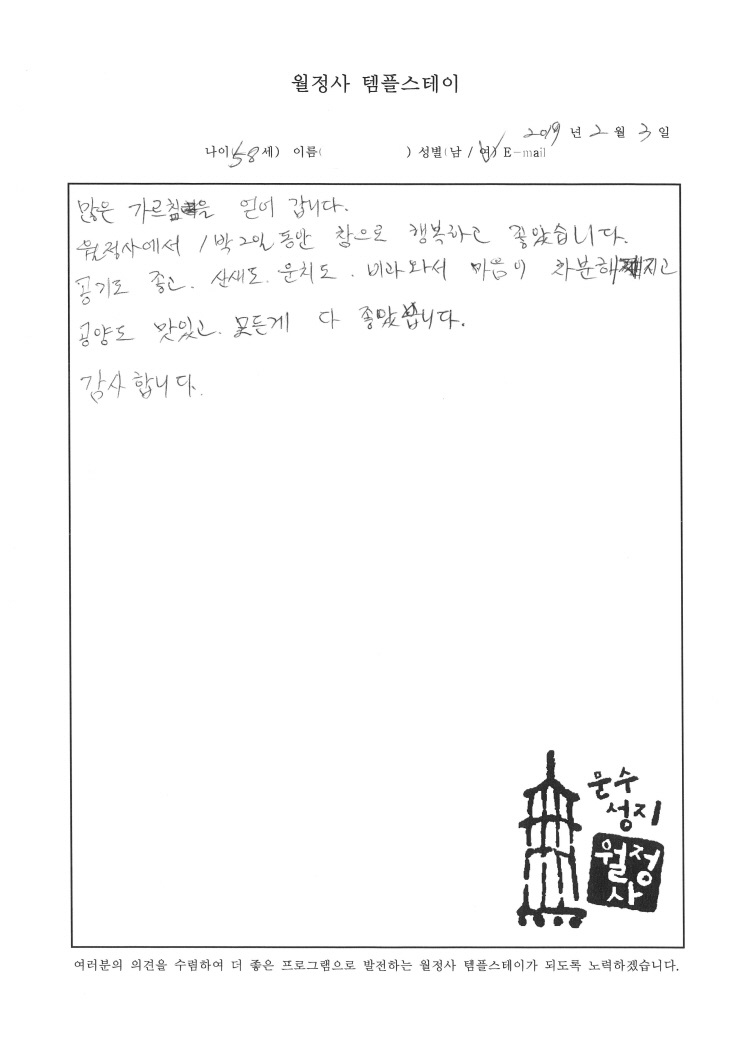 월정사 템플스테이
2019 년 2 월 3 일
나이(58세) 이름( ) 성별(남 / 여) E-mail
많은 가르침을 얻어 갑니다.
월정사에서 1박2일동안 참으로 행복하고 좋았습니다.
공기도 좋고. 산새도. 운치도. 비과와서 마음이 차분해지고
공양도 맛있고. 모든게 다 좋았습니다.
감사합니다.
문수
성지
월정
사
여러분의 의견을 수렴하여 더 좋은 프로그램으로 발전하는 월정사 템플스테이가 되도록 노력하겠습니다.